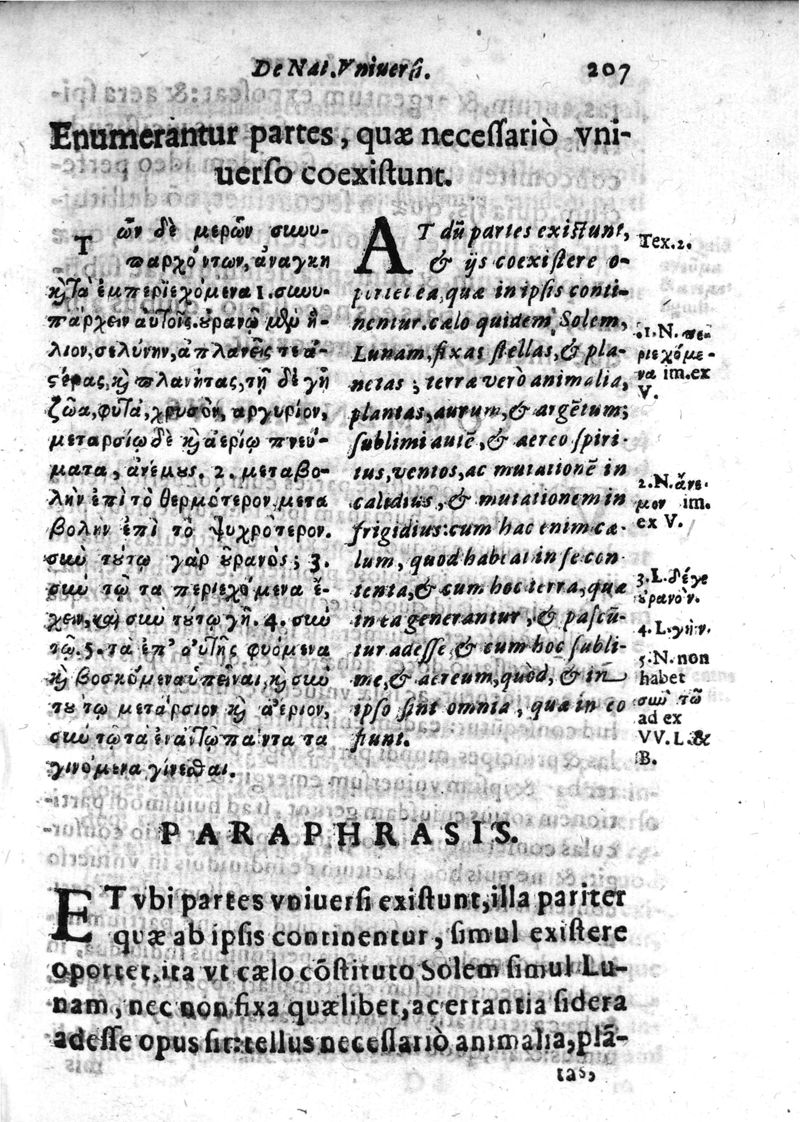 De Nat. Vniuersi. 207
Enumerantur partes, quæ necessariò vni-
uerso coexistunt.
Τῶν δὲ μερῶν συνυ-
παρχόντων, ἀναγκη
κỳ τὰ ἐμπεριεχόμενα 1. συνυ-
πάρχειν αὐτοῖς. ȣ̓ρανῷ μὲν ἥ-
λιον, σελύνην, ἀπλανεῖς τε ἀ-
ςέρας, κỳ πλανήτας, τῇ δὲ γῇ
ζῶα, φυτὰ, χρυσὸν, ἀργυρίον,
μεταρσίῳ δὲ κỳ ἀερίῳ πνεύ-
ματα, ἀνέμȣς. 2. μεταβο-
λὴν ἐπὶ τὸ θερμότερον, μετα
βολην ἐπὶ τὸ ψυχρότερον.
σὺν τȣ́τῳ γὰρ ȣ̓ρανὸς; 3.
σὺν τῶ τα περιεχόμενα ἔ-
χειν, καὶ σὺν τȣ́τῳ γῆ. 4. σὺν
τῶ. 5. τὰ ἐπ' αὐτῆς φυόμενα
κỳ βοσκόμενα ὑπεῖναι, κỳ σὺν
τȣ́τῳ μετάρσιον κỳ ἀέριον,
σὺν τῶ τὰ ἐν αὐτῷ πάντα τα
γινόμενα γίνεσθαι.
AT dũ partes existunt,
& ijs coexistere o-
portet ea, quæ in ipsis conti-
nentur. cælo quidem, Solem,
Lunam, fixas stellas, & pla-
netas; terræ verò animalia,
plantas, aurum, & argẽtum;
sublimi autẽ, & aereo spiri-
tus, ventos, ac mutationẽ in
calidius, & mutationem in
frigidius: cum hac enim cæ-
lum, quod habeat in se con
tenta, & cum hoc terra, quæ
in ea generantur, & pascũ-
tur adesse, & cum hoc subli-
me, & aereum, quòd, & in
ipso sint omnia, quæ in eo
fiunt.
Tex. 2.
1. N. πε-
ριεχόμε-
να im. ex
V.
2. N. ἄνε-
μον im.
ex V.
3. L. δέγε
ȣ̓ρανὸν.
4. L. γὴν.
5. N. non
habet
σὺν τῶ
ad ex
VV. L. &
B.
PARAPHRASIS.
ET vbi partes vniuersi existunt, illa pariter
quæ ab ipsis continentur, simul existere
oportet, ita vt cælo cõstituto Solem simul Lu-
nam, nec non fixa quælibet, ac errantia sidera
adesse opus sit: tellus necessariò animalia, plã-
tas,